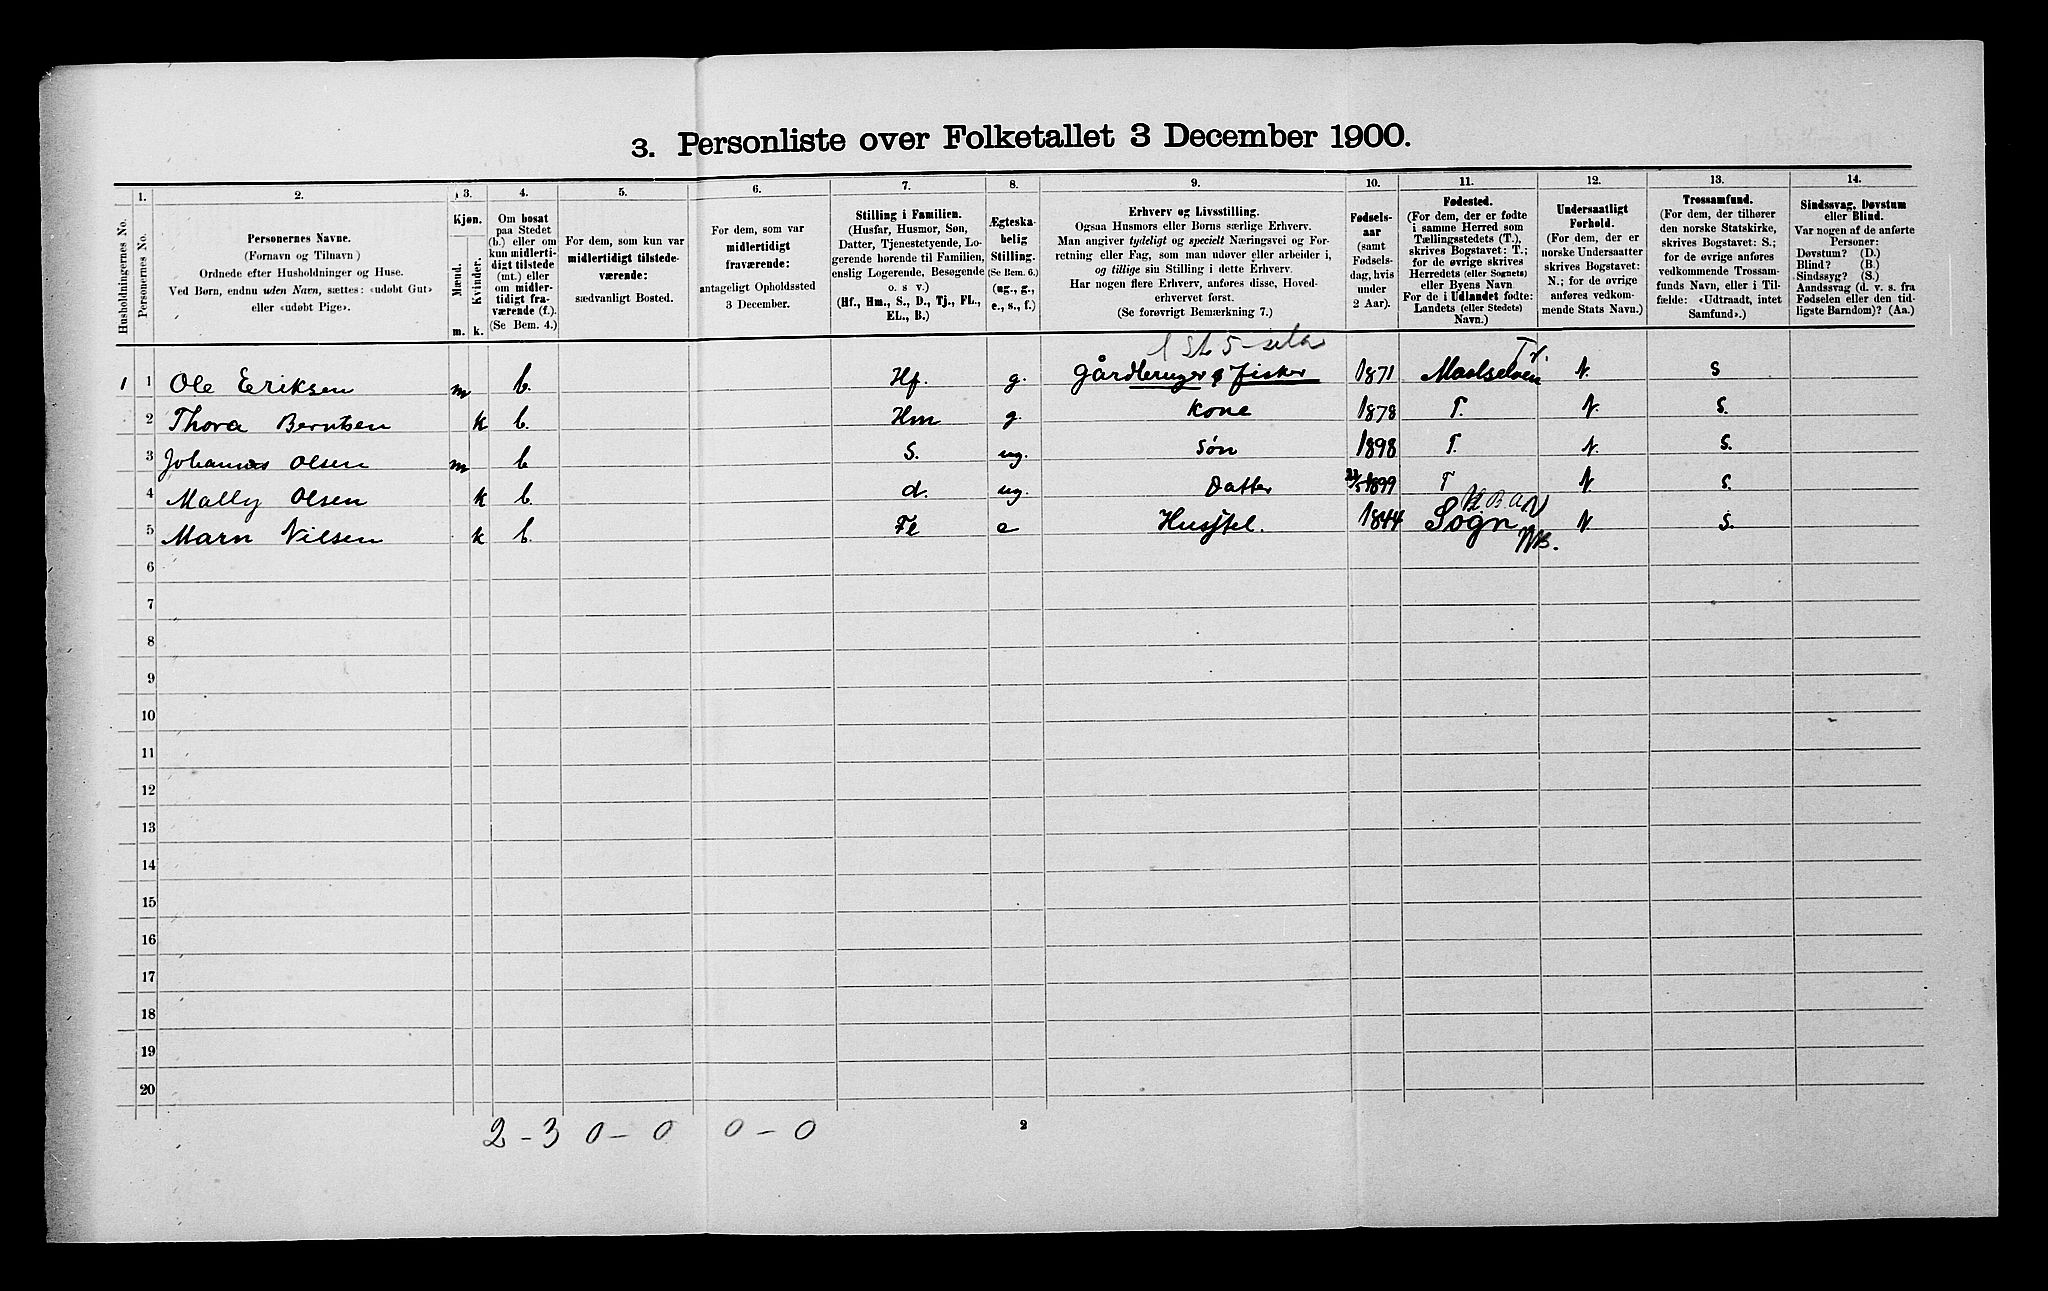 3. Personliste over Folketallet 3 December 1900.
Husholdningernes No.
1.
Personernes No.
2.
Personernes Navne.
(Fornavn og Tilnavn)
Ordnede efter Husholdninger og Huse.
Ved Børn, endnu uden Navn, sættes: «udøbt Gut»
eller «udøbt Pige».
3.
Kjøn.
Mænd.
Kvinder.
m. k.
4.
Om bosat
paa Stedet
(b.) eller om
kun midlerti-
digt tilstede
(mt.) eller
om midler-
tidigt fra-
værende (f.).
(Se Bem. 4.)
5.
For dem, som kun var
midlertidigt tilstede-
værende:
sædvanligt Bosted.
6.
For dem, som var
midlertidigt
fraværende:
antageligt Opholdssted
3 December.
7.
Stilling i Familien.
(Husfar, Husmor, Søn,
Datter, Tjenestetyende, Lo-
gerende hørende til Familien,
enslig Logerende, Besøgende
o. s v.)
(Hf., Hm., S., D., Tj., FL.,
EL., B.)
8.
Ægteska-
belig
Stilling.
(Se Bem. 6.)
(ug., g.,
e., s., f.)
9.
Erhverv og Livsstilling.
Ogsaa Husmors eller Børns særlige Erhverv.
Man angiver tydeligt og specielt Næringsvei og For-
retning eller Fag, som man udøver eller arbeider i,
og tillige sin Stilling i dette Erhverv.
Har nogen flere Erhverv, anføres disse, Hoved-
erhvervet først.
(Se forøvrigt Bemærkning 7.)
10.
Fødsels-
aar
(samt
Fødsels-
dag, hvis
under
2 Aar).
11.
Fødested.
(For dem, der er fødte
i samme Herred som
Tællingsstedets (T.),
skrives Bogstavet: T.;
for de øvrige skrives
Herredets (eller Sognets)
eller Byens Navn
For de i Udlandet fødte:
Landets (eller Stedets)
Navn.)
12.
Undersaatligt
Forhold.
(For dem, der er
norske Undersaatter
skrives Bogstavet:
N.; for de øvrige
anføres vedkom-
mende Stats Navn.)
13.
Trossamfund.
(For dem, der tilhører
den norske Statskirke,
skrives Bogstavet: S.;
for de øvrige anføres
vedkommende Trossam-
funds Navn, eller i Til-
fælde: «Udtraadt, intet
Samfund».)
14.
Sindssvag, Døvstum
eller Blind.
Var nogen af de anførte
Personer:
Døvstum? (D.)
Blind? (B.)
Sindssyg? (S.)
Aandssvag (d. v. s. fra
Fødselen eller den tid-
ligste Barndom)? (Aa.)
1 1 Ole Eriksen m b. Hf. g. gårdbruger g Fisker 1871 Maalselven Tr. N. S
2 Thora Berntsen k b. Hm g. Kone 1878 T. N. S.
3 Johannes Olsen m b S. ug. Søn 1898 T. N. S.
4 Mally Olsen k b. d. ug. Datter 1899 T N. S.
5 Marn Nilsen k b. Fl e 1844 Sogn NB. N. S.
6
7
8
9
10
11
12
13
14
15
16
17
18
19
20
2 - 3 0 - 0 0 - 0
2